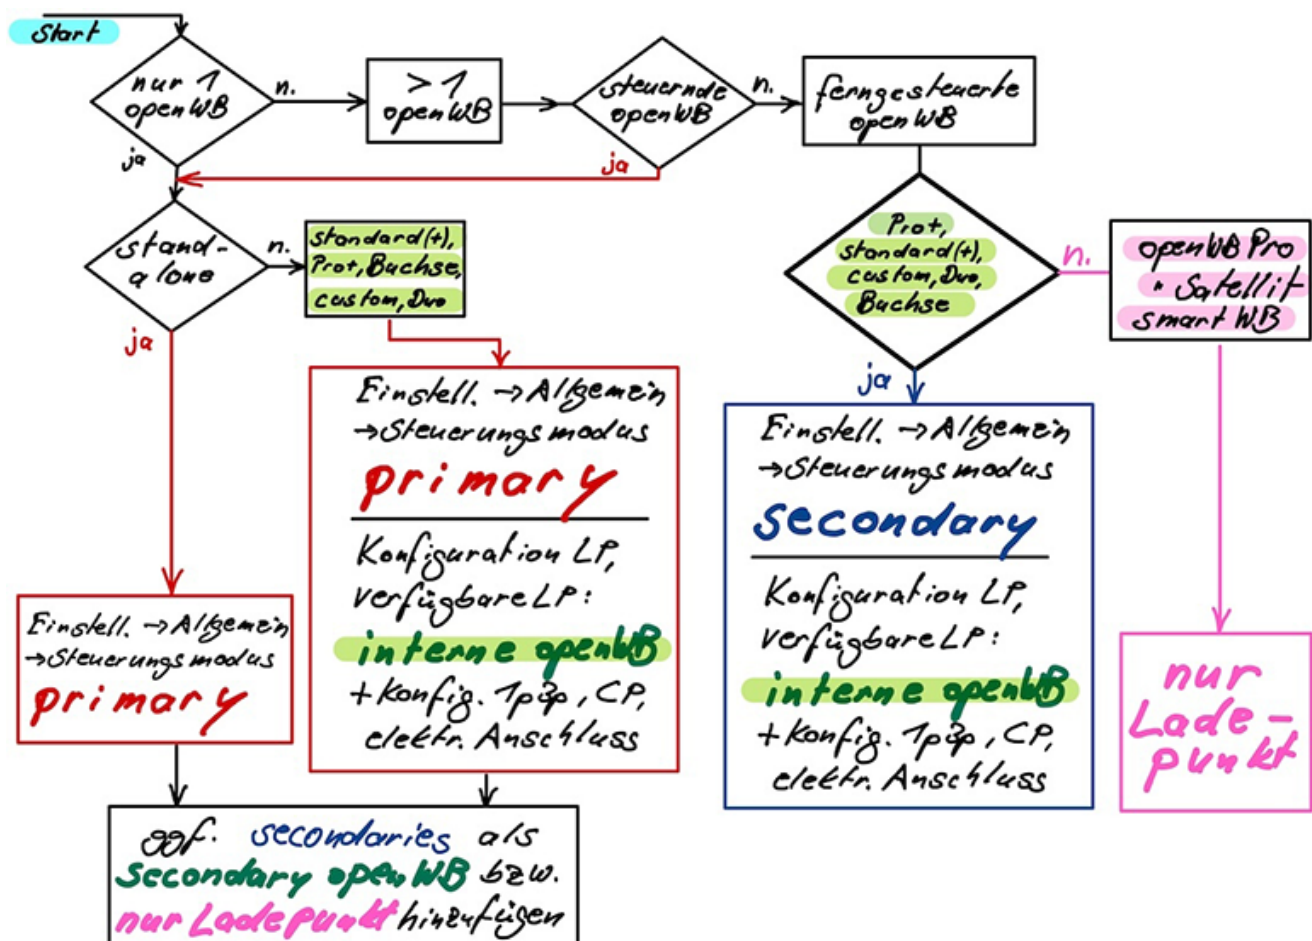 Start
nur 1
openWB
n.
ja
> 1
openWB
steuernde
openWB
n.
ja
ferngesteuerte
openWB
stand-
alone
n.
ja
standard(+),
Pro+, Buchse,
custom, Duo
Pro+,
standard(+),
custom, Duo,
Buchse
n.
ja
openWB Pro
" Satellit
smart WB
Einstell. → Allgemein
→ Steuerungsmodus
primary
Konfiguration LP,
verfügbare LP:
interne openWB
+ Konfig. 1p3p, CP,
elektr. Anschluss
Einstell. → Allgemein
→ Steuerungsmodus
secondary
Konfiguration LP,
verfügbare LP:
interne openWB
+ Konfig. 1p3p, CP,
elektr. Anschluss
Einstell. → Allgemein
→ Steuerungsmodus
primary
nur
Lade-
punkt
ggf. secondaries als
secondary openWB bzw.
nur Ladepunkt hinzufügen